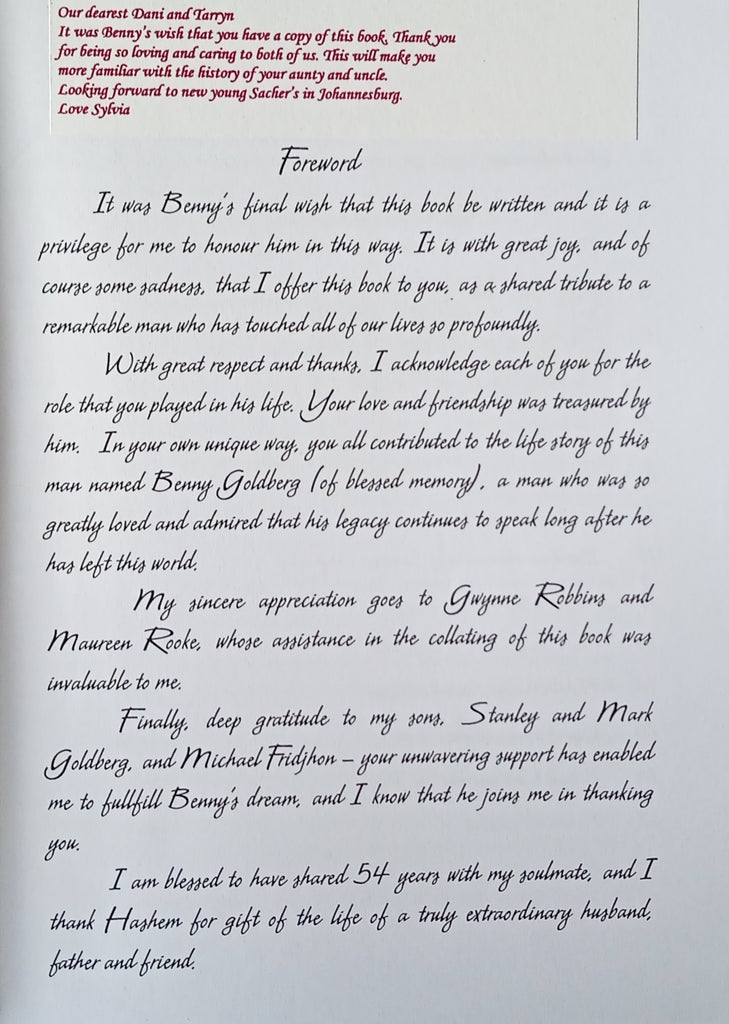 Our dearest Dani and Tarryn
It was Benny's wish that you have a copy of this book, Thank you
for being so loving and caring to both of us. This will make you
more familiar with the history of your aunty and uncle.
Looking forward to new young Sacher's in Johannesburg.
Love Sylvia
Foreword
It was Benny's final wish that this book be written and it is a
privilege for me to honour him in this way. It is with great joy, and of
course some sadness, that I offer this book to you, as a shared tribute to a
remarkable man who has touched all of our lives so profoundly.
With great respect and thanks, I acknowledge each of you for the
role that you played in his life. Your love and friendship was treasured by
him. In your own unique way, you all contributed to the life story of this
man named Benny Goldberg (of blessed memory), a man who was so
greatly loved and admired that his legacy continues to speak long after he
has left this world.
My sincere appreciation goes to Gwynne Robbins and
Maureen Rooke, whose assistance in the collating of this book was
invaluable to me.
Finally, deep gratitude to my sons, Stanley and Mark
Goldberg, and Michael Fridjhon – your unwavering support has enabled
me to fullfill Benny's dream, and I know that he joins me in thanking
you.
I am blessed to have shared 54 years with my soulmate, and I
thank Hashem for gift of the life of a truly extraordinary husband,
father and friend.